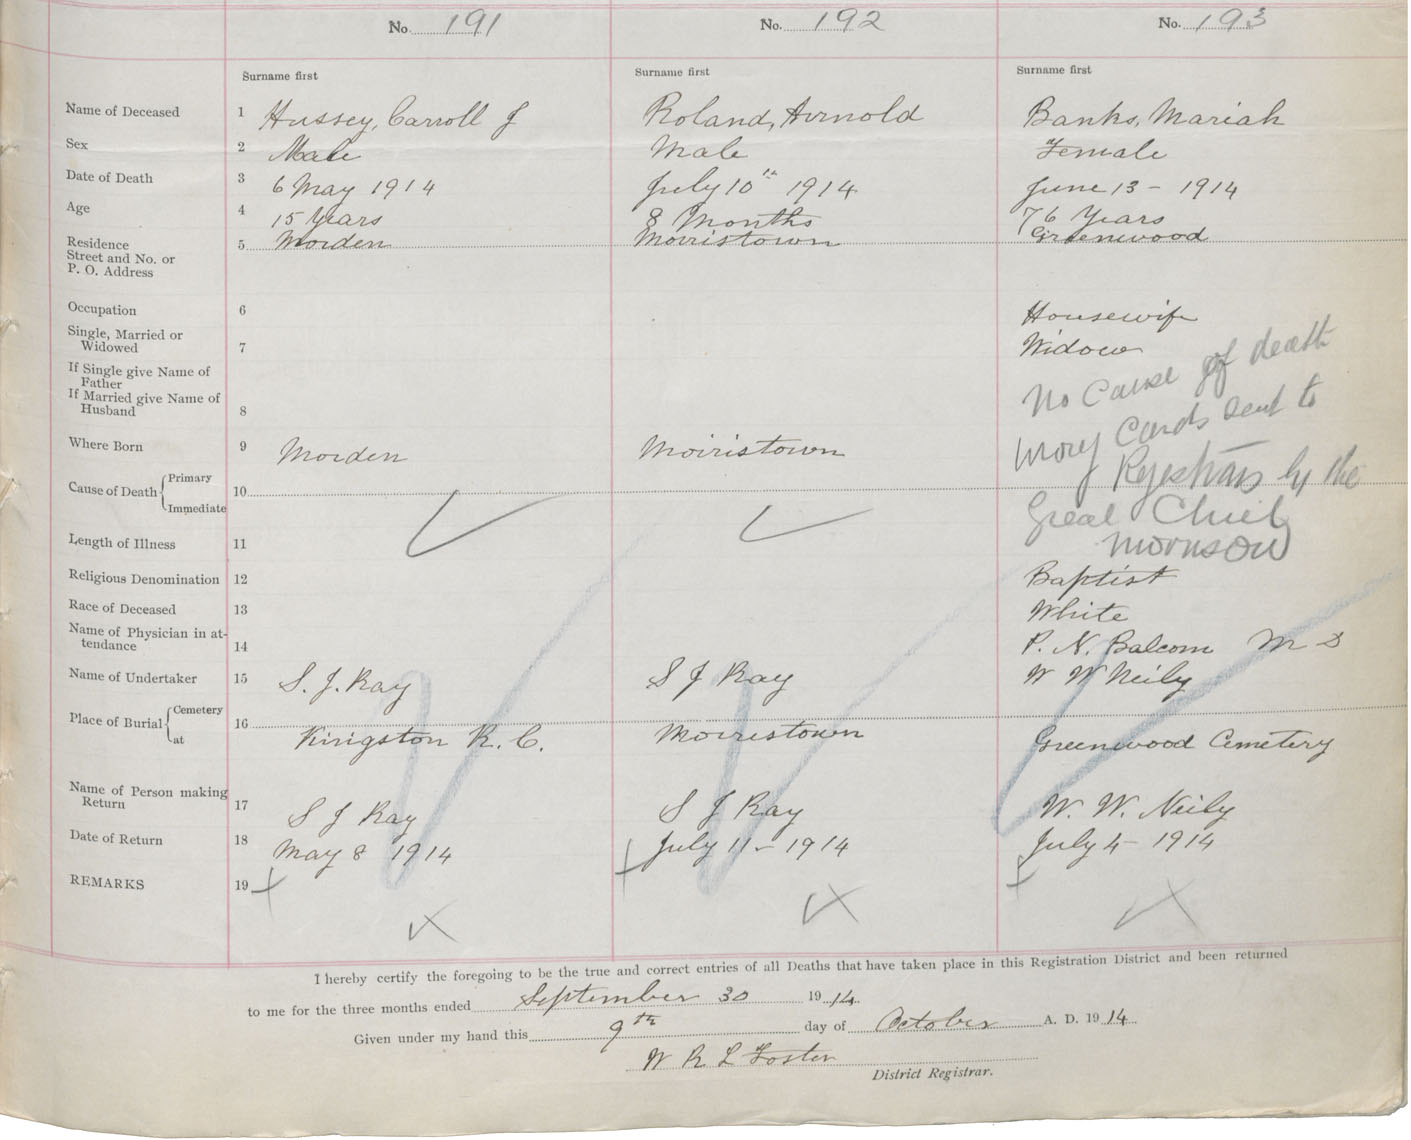 No. 191 No. 192 No. 193
Surname first Surname first Surname first
Name of Deceased 1 Hussey, Carroll J Roland, Arnold Banks, Mariah
Sex 2 Male Male Female
Date of Death 3 6 May 1914 July 10th 1914 June 13 - 1914
Age 4 15 Years 8 Months 76 Years
Residence 5 Morden Morristown Greenwood
Street and No. or
P. O. Address
Occupation 6 Housewife
Single, Married or
Widowed 7 Widow
If Single give Name of
Father
If Married give Name of
Husband 8
No Cause of death
Cards sent to
Registrars by the
Great Chief
Morrison
Where Born 9 Morden Morristown
Cause of Death Primary
10
Immediate
Length of Illness 11
Religious Denomination 12 Baptist
Race of Deceased 13 White
Name of Physician in at-
tendance 14 P. N. Balcom M D
Name of Undertaker 15 S. J. Ray S J Ray W W Neily
Place of Burial Cemetery 16
at Kingston R. C. Morristown Greenwood Cemetery
Name of Person making
Return 17 S J Ray S J Ray W. W. Neily
Date of Return 18 May 8 1914 July 11 - 1914 July 4 - 1914
REMARKS 19
I hereby certify the foregoing to be the true and correct entries of all Deaths that have taken place in this Registration District and been returned
to me for the three months ended September 30 1914.
Given under my hand this 9th day of October A. D. 1914
W R L Foster
District Registrar.